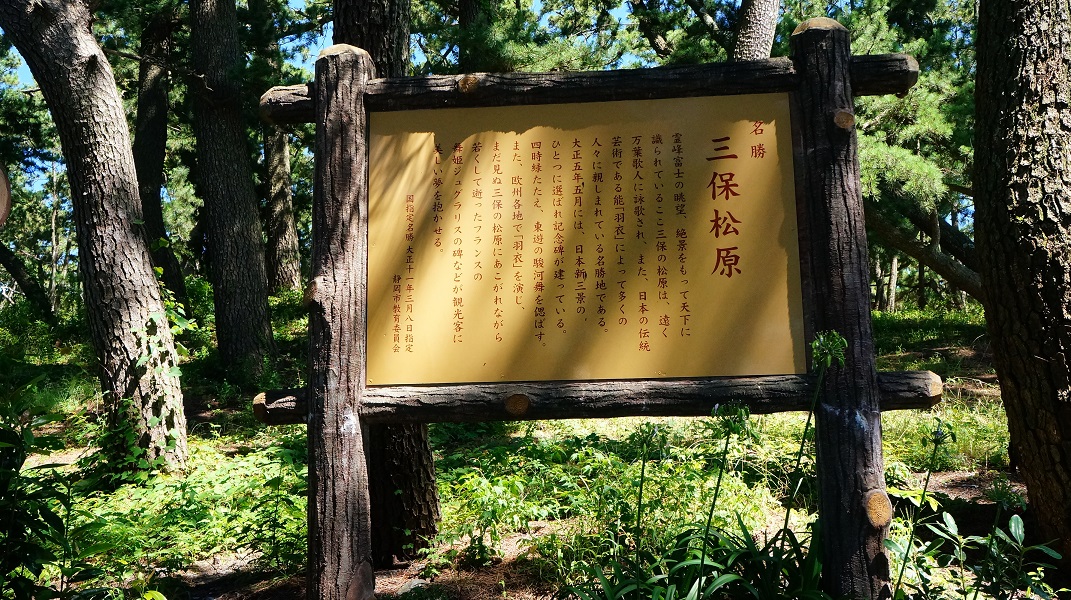 名勝
三保松原
霊峰富士の眺望、絶景をもって天下に
識られているここ三保の松原は、遠く
万葉歌人に詠歌され、また、日本の伝統
芸術である能「羽衣」によって多くの
人々に親しまれている名勝地である。
大正五年五月には、日本新三景の、
ひとつに選ばれ記念碑が建っている。
四時緑たたえ、東遊の駿河舞を偲ばす。
また、欧州各地で「羽衣」を演じ、
まだ見ぬ三保の松原にあこがれながら
若くして逝ったフランスの
舞姫ジュグラリスの碑などが観光客に
美しい夢を抱かせる。
国指定名勝大正十一年三月八日指定
静岡市教育委員会